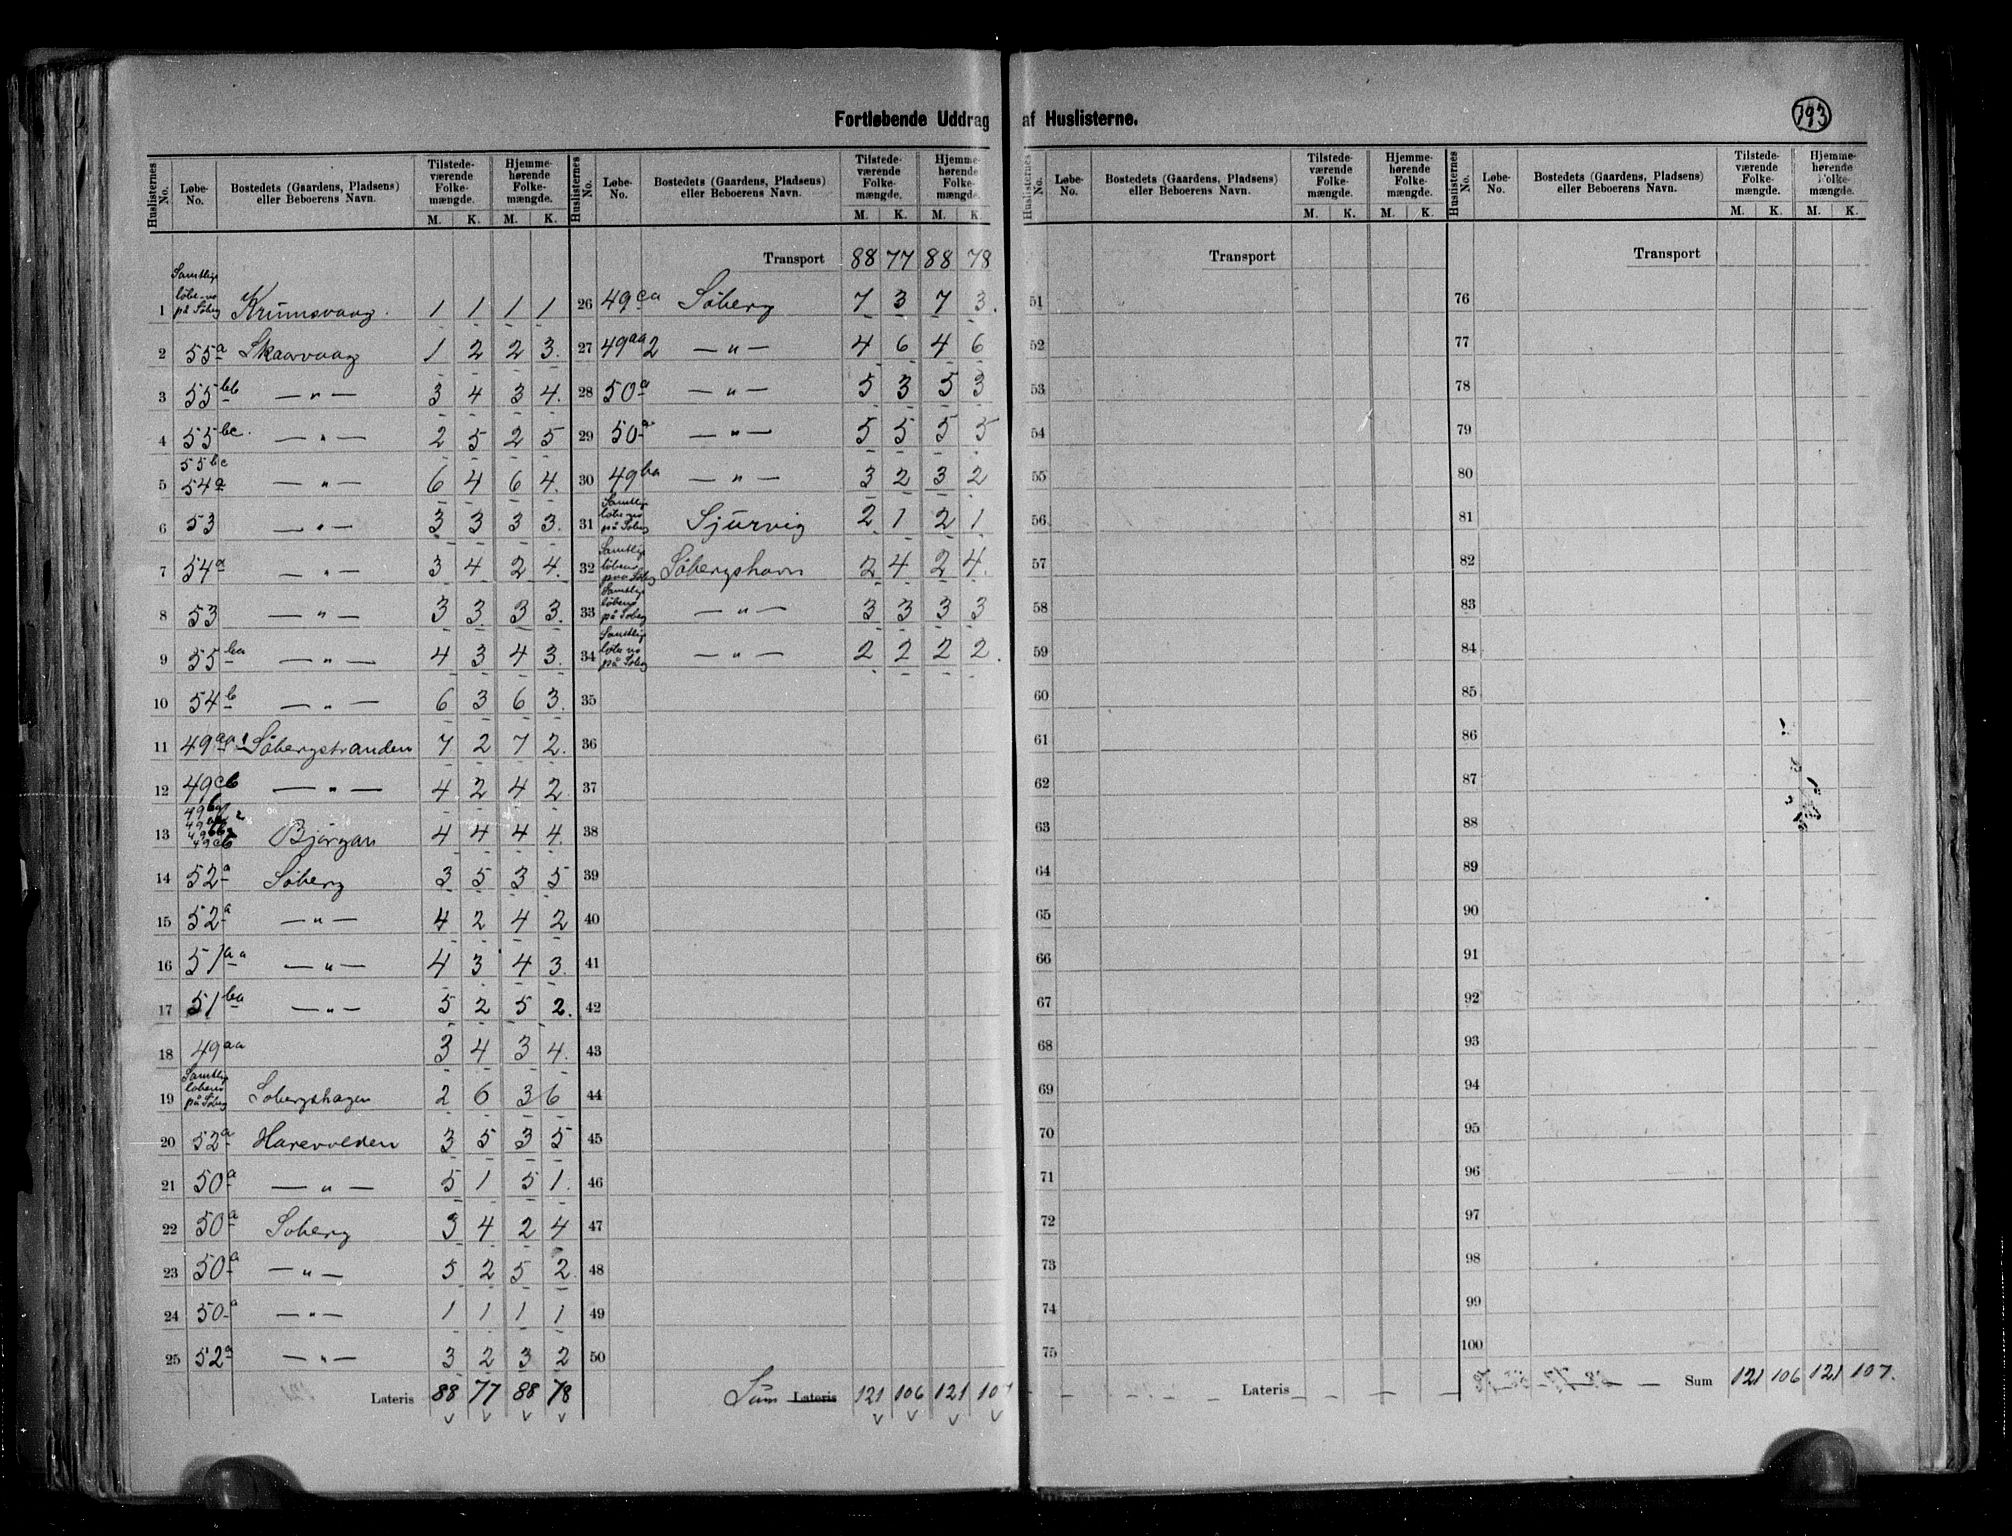 793
Fortløbende Uddrag af Huslisterne.
Huslisternes No. | Løbe-No. | Bostedets (Gaardens, Pladsens) eller Beboerens Navn. | Tilstedeværende Folkemængde. M. K. | Hjemmehørende Folkemængde. M. K.
1 Samtlige løbe no på Søberg Krumsvaag. 1 1 1 1
2 55a Skaarvaag 1 2 2 3.
3 55bb — „ — 3 4 3 4.
4 55bc. — „ — 2 5 2 5
5 55bc 54a — „ — 6 4 6 4.
6 53 — „ — 3 3 3 3.
7 54a — „ — 3 4 2 4.
8 53 — „ — 3 3 3 3.
9 55ba — „ — 4 3 4 3.
10 54b — „ — 6 3 6 3.
11 49aa1 Søbergstranden 7 2 7 2.
12 49cb — „ — 4 2 4 2.
13 49cb Bjørgan 4 4 4 4.
14 52a Søberg 3 5 3 5
15 52a — „ — 4 2 4 2
16 51aa — „ — 4 3 4 3.
17 51ba — „ — 5 2 5 2.
18 49aa 3 4 3 4.
19 Samtlig løbeno på Søberg Søbergshagen 2 6 3 6
20 52a Harevolden 3 5 3 5
21 50a — „ — 5 1 5 1.
22 50a Soberg 3 4 2 4
23 50a — „ — 5 2 5 2
24 50a — „ — 1 1 1 1
25 52a — „ — 3 2 3 2
Lateris 88 77 88 78
Huslisternes No. | Løbe-No. | Bostedets (Gaardens, Pladsens) eller Beboerens Navn. | Tilstedeværende Folkemængde. M. K. | Hjemmehørende Folkemængde. M. K.
Transport 88 77 88 78
26 49ca Søberg 7 3 7 3.
27 49aa2 — „ — 4 6 4 6
28 50a — „ — 5 3 5 3
29 50a — „ — 5 5 5 5
30 49ba — „ — 3 2 3 2
31 Samtlig løbe no på Søberg Sjurvig 2 1 2 1
32 Samtlig løbeno paa Søbg Søbergshavn 2 4 2 4.
33 Samtlige løbeno på Søberg — „ — 3 3 3 3
34 Samtlig løbe no på Soberg — „ — 2 2 2 2.
35
36
37
38
39
40
41
42
43
44
45
46
47
48
49
50
Sum Lateris 121 106 121 107
Huslisternes No. | Løbe-No. | Bostedets (Gaardens, Pladsens) eller Beboerens Navn. | Tilstedeværende Folkemængde. M. K. | Hjemmehørende Folkemængde. M. K.
Transport
51
52
53
54
55
56
57
58
59
60
61
62
63
64
65
66
67
68
69
70
71
72
73
74
75
Lateris
Huslisternes No. | Løbe-No. | Bostedets (Gaardens, Pladsens) eller Beboerens Navn. | Tilstedeværende Folkemængde. M. K. | Hjemmehørende Folkemængde. M. K.
Transport
76
77
78
79
80
81
82
83
84
85
86
87
88
89
90
91
92
93
94
95
96
97
98
99
100
Sum 121 106 121 107.